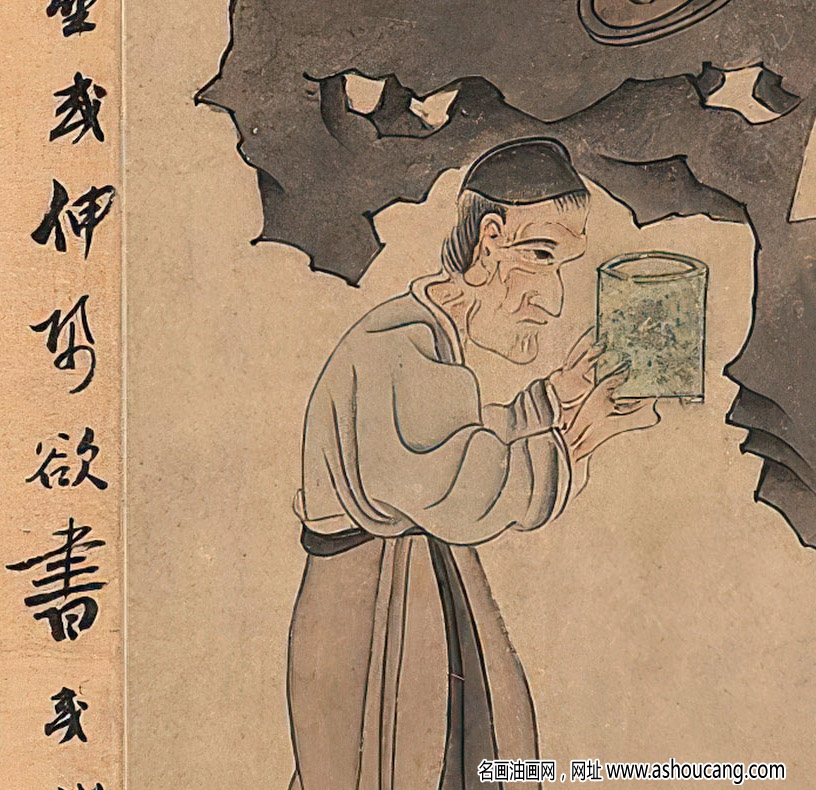 或伸紙欲書或
名画油画网，网址 www.ashoucang.com